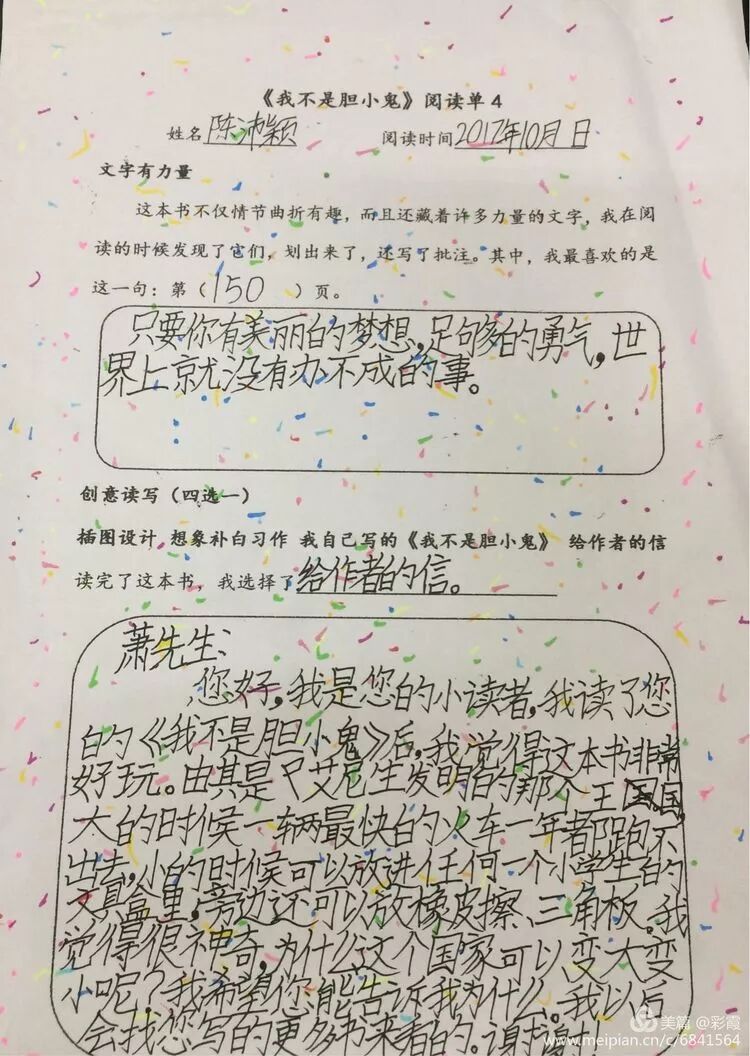 《我不是胆小鬼》阅读单4
姓名 陈沛颖 阅读时间 2017年10月 日
文字有力量
这本书不仅情节曲折有趣，而且还藏着许多力量的文字，我在阅
读的时候发现了它们，划出来了，还写了批注。其中，我最喜欢的是
这一句：第（150）页。
只要你有美丽的梦想，足够的勇气，世
界上就没有办不成的事。
创意读写（四选一）
插图设计 想象补白习作 我自己写的《我不是胆小鬼》 给作者的信
读完了这本书，我选择了给作者的信。
萧先生：
您好，我是您的小读者，我读了您
的《我不是胆小鬼》后，我觉得这本书非常
好玩。由其是尸艾尼生发明的那个王国，
大的时候一辆最快的火车一年都跑不
出去，小的时候可以放进任何一个小学生的
文具盒里，旁边还可以放橡皮擦、三角板。我
觉得很神奇，为什么这个国家可以变大变
小呢？我希望你能告诉我为什么。我以后
会找您写的更多书来看的。谢谢！
美篇 @彩霞
www.meipian.cn/c/6841564